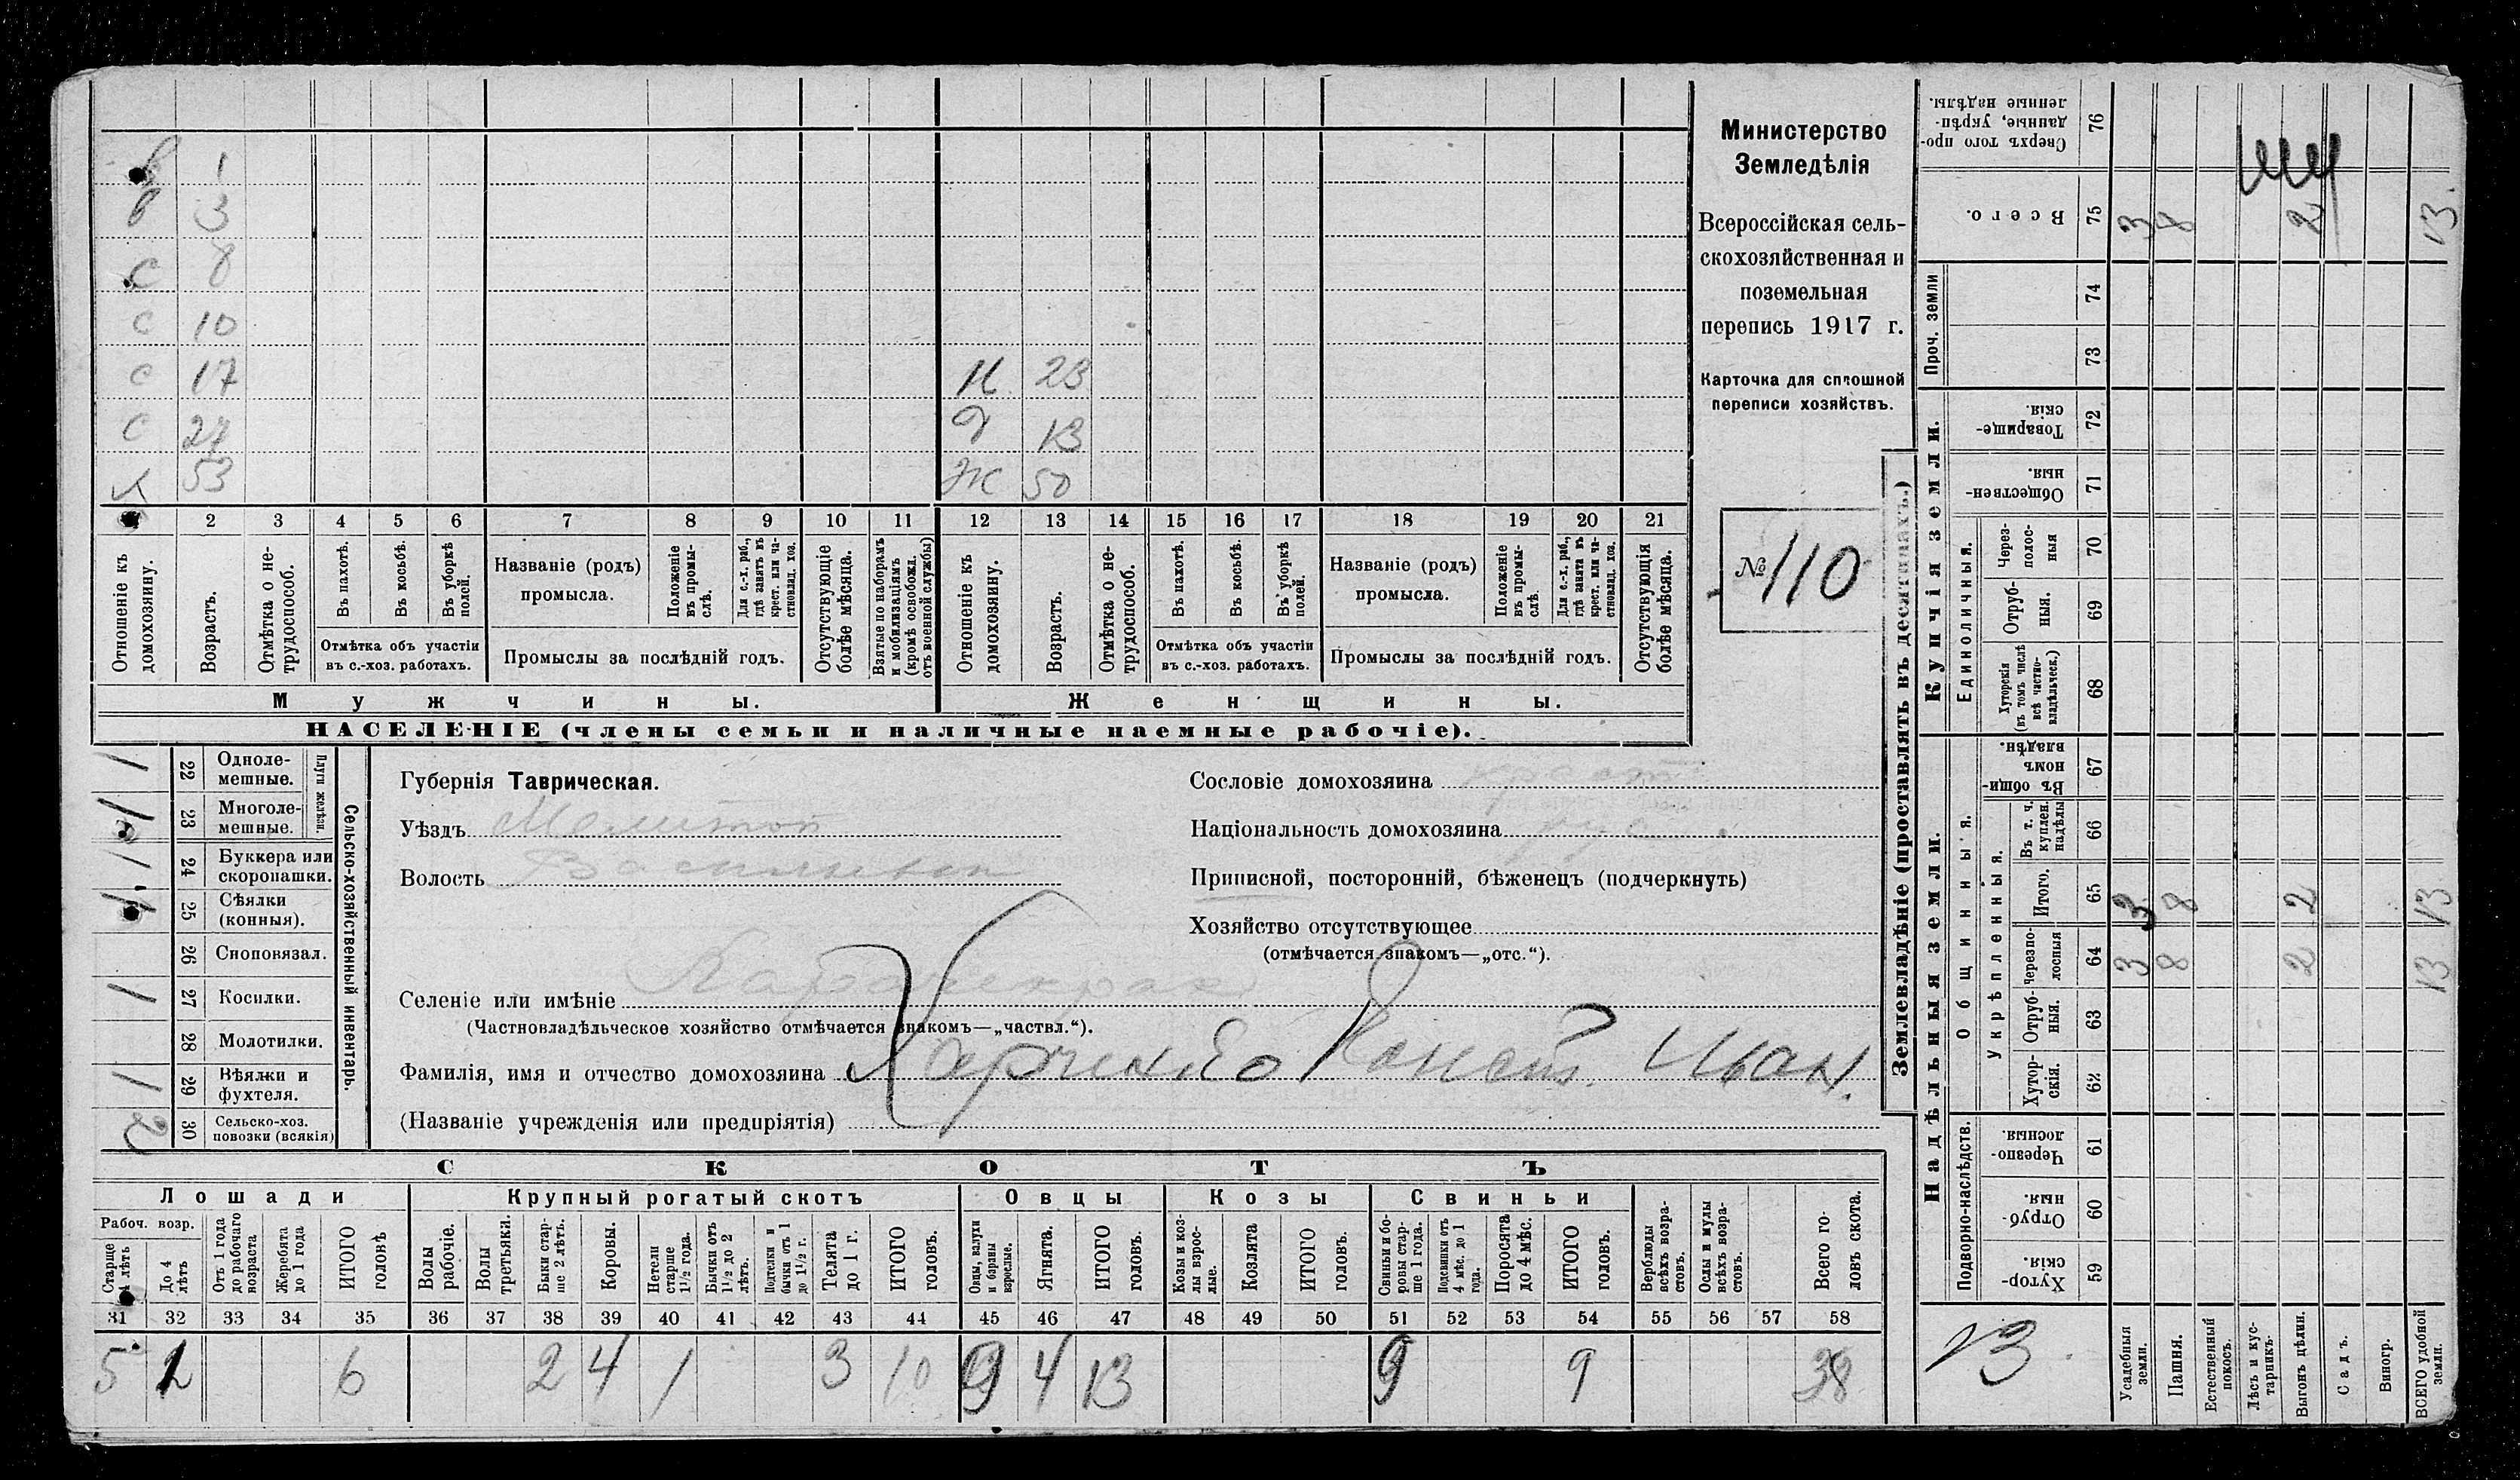 в 1
в 3
с 8
с 10
с 17 Н 23
с 27 д 13
х 53 ж 50
1 2 3 4 5 6 7 8 9 10 11 12 13 14 15 16 17 18 19 20 21
Отношеніе къ домохозяину.
Возрастъ.
Отмѣтка о не-
трудоспособ.
Въ пахотѣ.
Въ косьбѣ.
Въ уборкѣ
полей.
Отмѣтка объ участіи
въ с.-хоз. работахъ.
Названіе (родъ)
промысла.
Положеніе
въ промы-
слѣ.
Для с.-х. раб.,
гдѣ занятъ въ
крест. или ча-
стновлад. хоз.
Промыслы за послѣдній годъ.
Отсутствующіе
болѣе мѣсяца.
Взятые по наборамъ
и мобилизаціямъ
(кромѣ освобожд.
отъ военной службы)
Отношеніе къ
домохозяину.
Возрастъ.
Отмѣтка о не-
трудоспособ.
Въ пахотѣ.
Въ косьбѣ.
Въ уборкѣ
полей.
Отмѣтка объ участіи
въ с.-хоз. работахъ.
Названіе (родъ)
промысла.
Положеніе
въ промы-
слѣ.
Для с.-х. раб.,
гдѣ занята въ
крест. или ча-
стновлад. хоз.
Промыслы за послѣдній годъ.
Отсутствующія
болѣе мѣсяца.
Мужчины.
Женщины.
НАСЕЛЕНІЕ (члены семьи и наличные наемные рабочіе).
Министерство
Земледѣлія
Всероссійская сель-
скохозяйственная и
поземельная
перепись 1917 г.
Карточка для сплошной
переписи хозяйствъ.
№ 110
1 22 Одноле-
мешные.
1 23 Многоле-
мешные.
Плуги желѣзн.
1 24 Буккера или
скоропашки.
1 25 Сѣялки
(конныя).
26 Сноповязал.
1 27 Косилки.
28 Молотилки.
1 29 Вѣялки и
фухтеля.
2 30 Сельско-хоз.
повозки (всякія)
Сельско-хозяйственный инвентарь.
Губернія Таврическая.
Уѣздъ Мелитоп
Волость Васильевск
Селеніе или имѣніе
(Частновладѣльческое хозяйство отмѣчается знакомъ—„частвл.“).
Фамилія, имя и отчество домохозяина Харченко Конст. Иван.
(Названіе учрежденія или предпріятія)
Сословіе домохозяина крест
Національность домохозяина рус.
Приписной, посторонній, бѣженецъ (подчеркнуть)
Хозяйство отсутствующее
(отмѣчается знакомъ—„отс.“).
СКОТЪ
Лошади
Крупный рогатый скотъ
Овцы
Козы
Свиньи
Рабоч. возр.
Старше
4 лѣтъ
До 4
лѣтъ
Отъ 1 года
до рабочаго
возраста
Жеребята
до 1 года
ИТОГО
головъ
Волы
рабочіе.
Волы
третьяки.
Быки стар-
ше 2 лѣтъ.
Коровы.
Нетели
старше
1½ года.
Бычки отъ
1½ до 2
лѣтъ.
Подтелки и
бычки отъ 1
до 1½ г.
Телята
до 1 г.
ИТОГО
головъ.
Овцы, валухи
и бараны
взрослые.
Ягнята.
ИТОГО
головъ.
Козы и коз-
лы взрос-
лые.
Козлята
ИТОГО
головъ.
Свиньи и бо-
ровы стар-
ше 1 года.
Подсвинки отъ
4 мѣс. до 1
года.
Поросята
до 4 мѣс.
ИТОГО
головъ.
Верблюды
всѣхъ возра-
стовъ.
Ослы и мулы
всѣхъ возра-
стовъ.
Всего го-
ловъ скота.
31 32 33 34 35 36 37 38 39 40 41 42 43 44 45 46 47 48 49 50 51 52 53 54 55 56 57 58
5 1 6 2 4 1 3 10 9 4 13 9 9 38
Землевладѣніе (проставлять въ десятинахъ.)
Надѣльныя земли.
Купчія земли.
Проч. земли
Сверхъ того про-
данные, укрѣп-
ленные надѣлы.
76
Всего.
75 3 8 2 13.
74
73
Товарище-
скія.
72
Обществен-
ныя.
71
Единоличныя.
Через-
полос-
ныя
70
Отруб-
ныя.
69
Хуторскія
(въ томъ числѣ
всѣ частно-
владѣльческ.)
68
Общинныя.
Въ общи
номъ
владѣн.
67
Укрѣпленныя.
Въ т. ч.
куплен.
надѣлы
66
Итого.
65 3 8 2 13
Черезпо-
лосныя
64 3 8 2 13
Отруб-
ныя.
63
Хутор-
скія.
62
Подворно-наслѣдств.
Черезпо-
лосныя
61
Отруб-
ныя.
60
Хутор-
скія.
59
13
Усадебныя
земли.
Пашня.
Естественный
покосъ.
Лѣсъ и кус-
тарникъ.
Выгонъ цѣлин.
Садъ.
Виногр.
ВСЕГО удобной
земли.